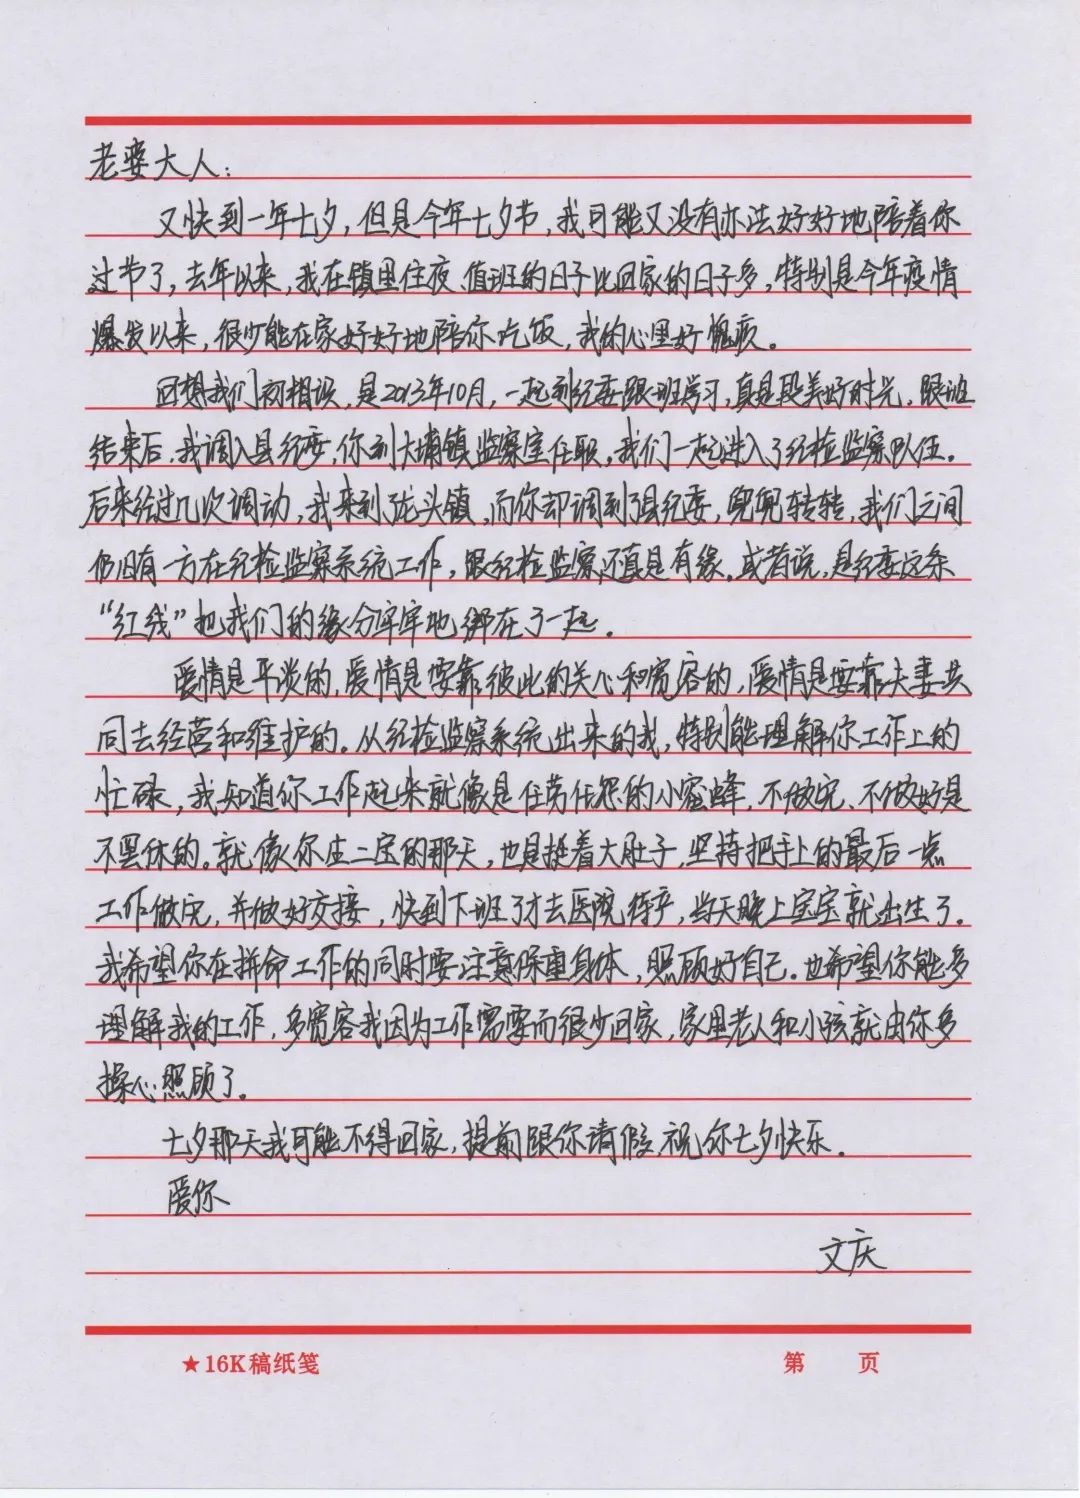 老婆大人：
又快到一年七夕，但是今年七夕节，我可能又没有办法好好地陪着你
过节了，去年以来，我在镇里住夜、值班的日子比回家的日子多，特别是今年疫情
爆发以来，很少能在家好好地陪你吃饭，我的心里好愧疚。
回想我们初相识，是2013年10月，一起到纪委跟班学习，真是段美好时光，跟班
结束后，我调入县纪委，你到大埔镇监察室任职，我们一起进入了纪检监察队伍。
后来经过几次调动，我来到龙头镇，而你却调到了县纪委，兜兜转转，我们之间
仍旧有一方在纪检监察系统工作，跟纪检监察还真是有缘。或者说，是纪委这条
“红线”把我们的缘分牢牢地绑在了一起。
爱情是平淡的，爱情是要靠彼此的关心和宽容的，爱情是要靠夫妻共
同去经营和维护的。从纪检监察系统出来的我，特别能理解你工作上的
忙碌，我知道你工作起来就像是任劳任怨的小蜜蜂，不做完、不做好是
不罢休的。就像你生二宝的那天，也是挺着大肚子，坚持把手上的最后一点
工作做完，并做好交接，快到下班了才去医院待产，当天晚上宝宝就出生了。
我希望你在拼命工作的同时要注意保重身体，照顾好自己。也希望你能多
理解我的工作，多宽容我因为工作需要而很少回家，家里老人和小孩就由你多
操心照顾了。
七夕那天我可能不得回家，提前跟你请假，祝你七夕快乐。
爱你
文庆
★16K稿纸笺 第 页